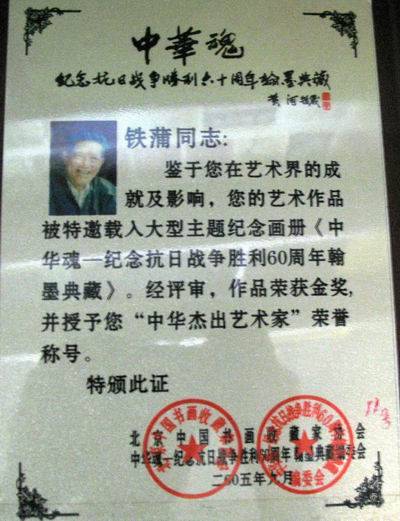 中華魂
纪念抗日战争胜利六十周年翰墨典藏
铁蒲同志:
鉴于您在艺术界的成
就及影响，您的艺术作品
被特邀载入大型主题纪念画册《中
华魂—纪念抗日战争胜利60周年翰
墨典藏》。经评审，作品荣获金奖,
并授予您“中华杰出艺术家”荣誉
称号。
特颁此证
北京中国书画收藏家协会
中华魂—纪念抗日战争胜利60周年翰墨典藏编委会
二00五年九月